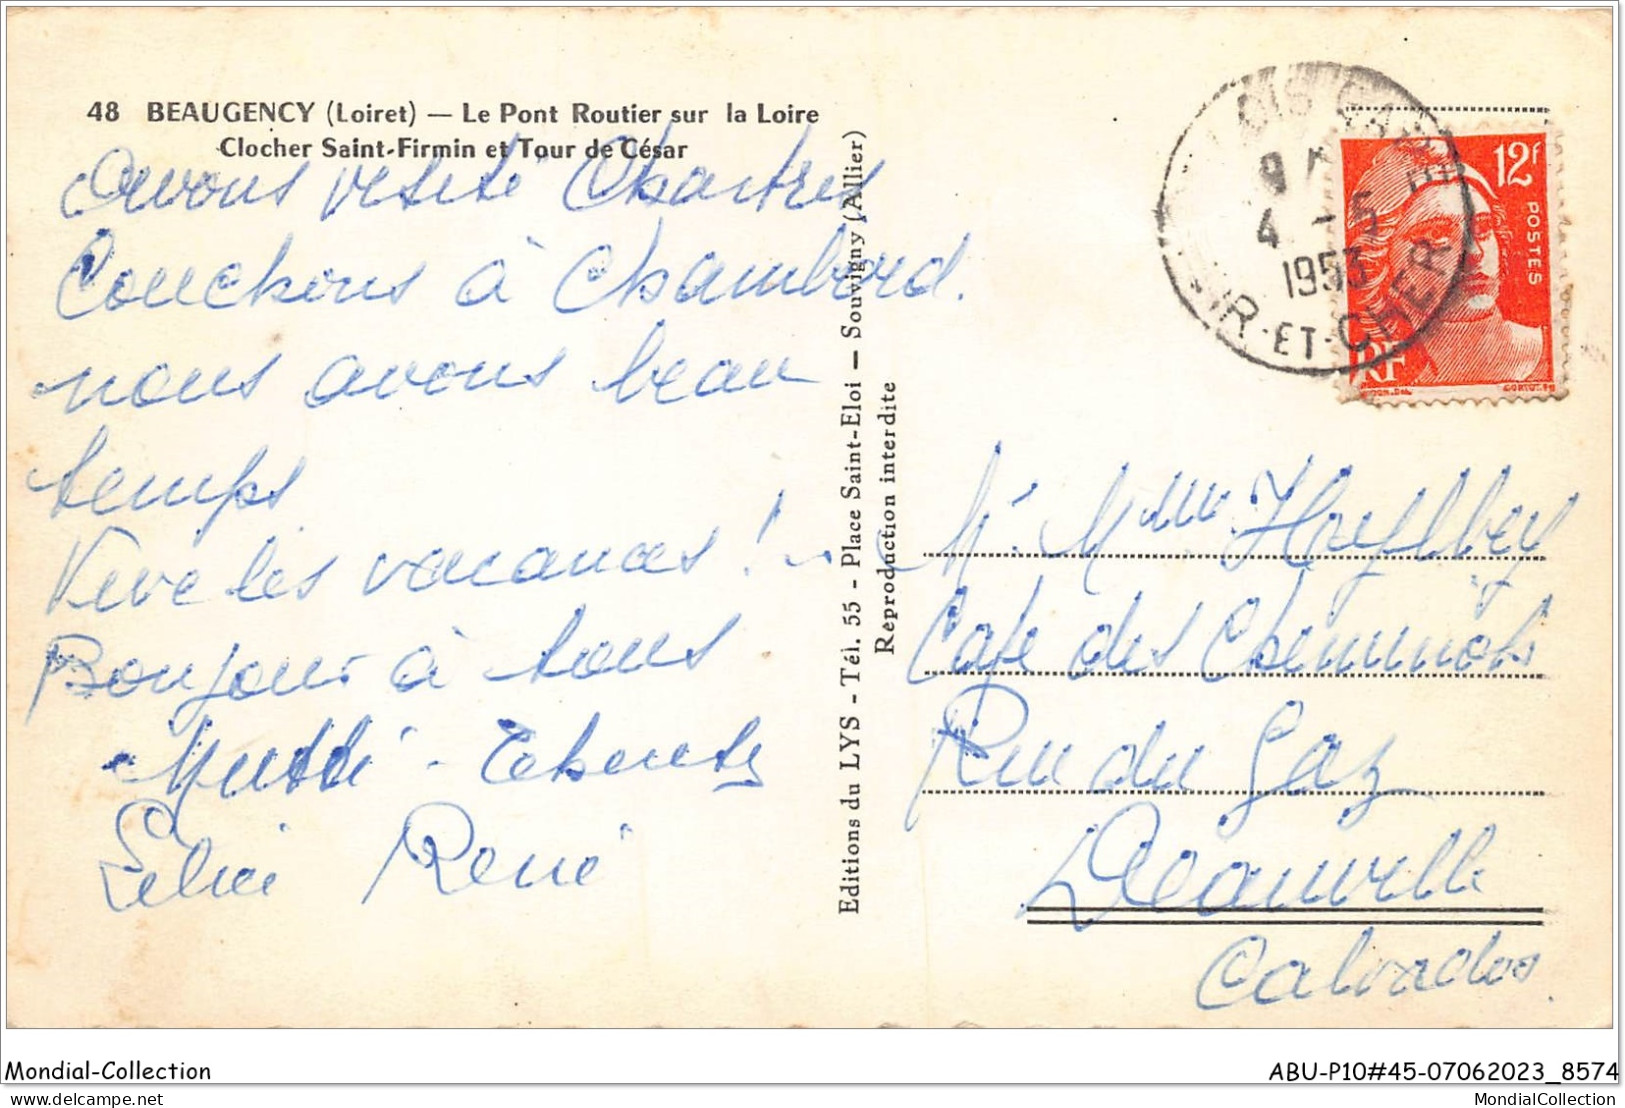 48 BEAUGENCY (Loiret) — Le Pont Routier sur la Loire
Clocher Saint-Firmin et Tour de César
Avons visité Chartres
Couchons à Chambord.
nous avons beau
temps
Vive les vacances !
Bonjour à tous
René
Editions du LYS - Tél. 55 - Place Saint-Eloi — Souvigny (Allier)
Reproduction interdite
4 -5
1953
ET-CHER
12f
POSTES
RF
Mr Mme
Café des Cheminots
Rue du Gaz
Deauville
Calvados.
Mondial-Collection
ABU-P10#45-07062023_8574
delcampe.net
MondialCollection